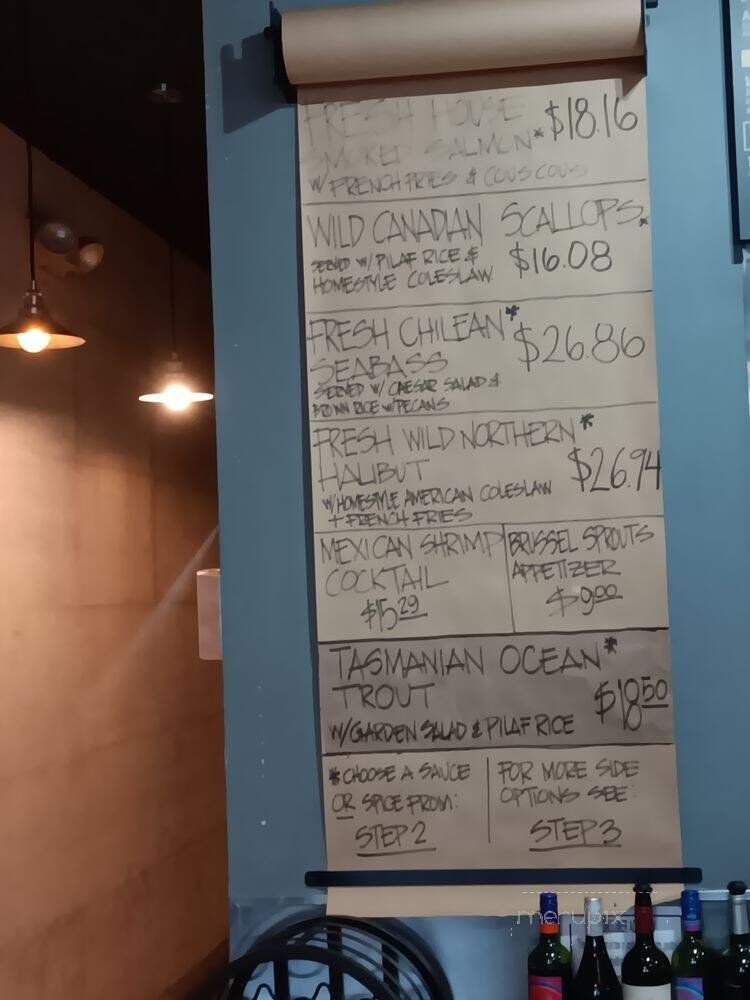 FRESH HOUSE
SMOKED SALMON* $18.16
W/ FRENCH FRIES & COUSCOUS
WILD CANADIAN SCALLOPS*
SERVED W/ PILAF RICE & $16.08
HOMESTYLE COLESLAW
FRESH CHILEAN* $26.86
SEABASS
SERVED W/ CAESAR SALAD &
BROWN RICE W/PECANS
FRESH WILD NORTHERN*
HALIBUT $26.94
W/HOMESTYLE AMERICAN COLESLAW
+ FRENCH FRIES
MEXICAN SHRIMP
COCKTAIL
$15.29
BRUSSEL SPROUTS
APPETIZER
$9.00
TASMANIAN OCEAN*
TROUT $18.50
W/GARDEN SALAD & PILAF RICE
*CHOOSE A SAUCE
OR SPICE FROM:
STEP 2
FOR MORE SIDE
OPTIONS SEE:
STEP 3
menupix